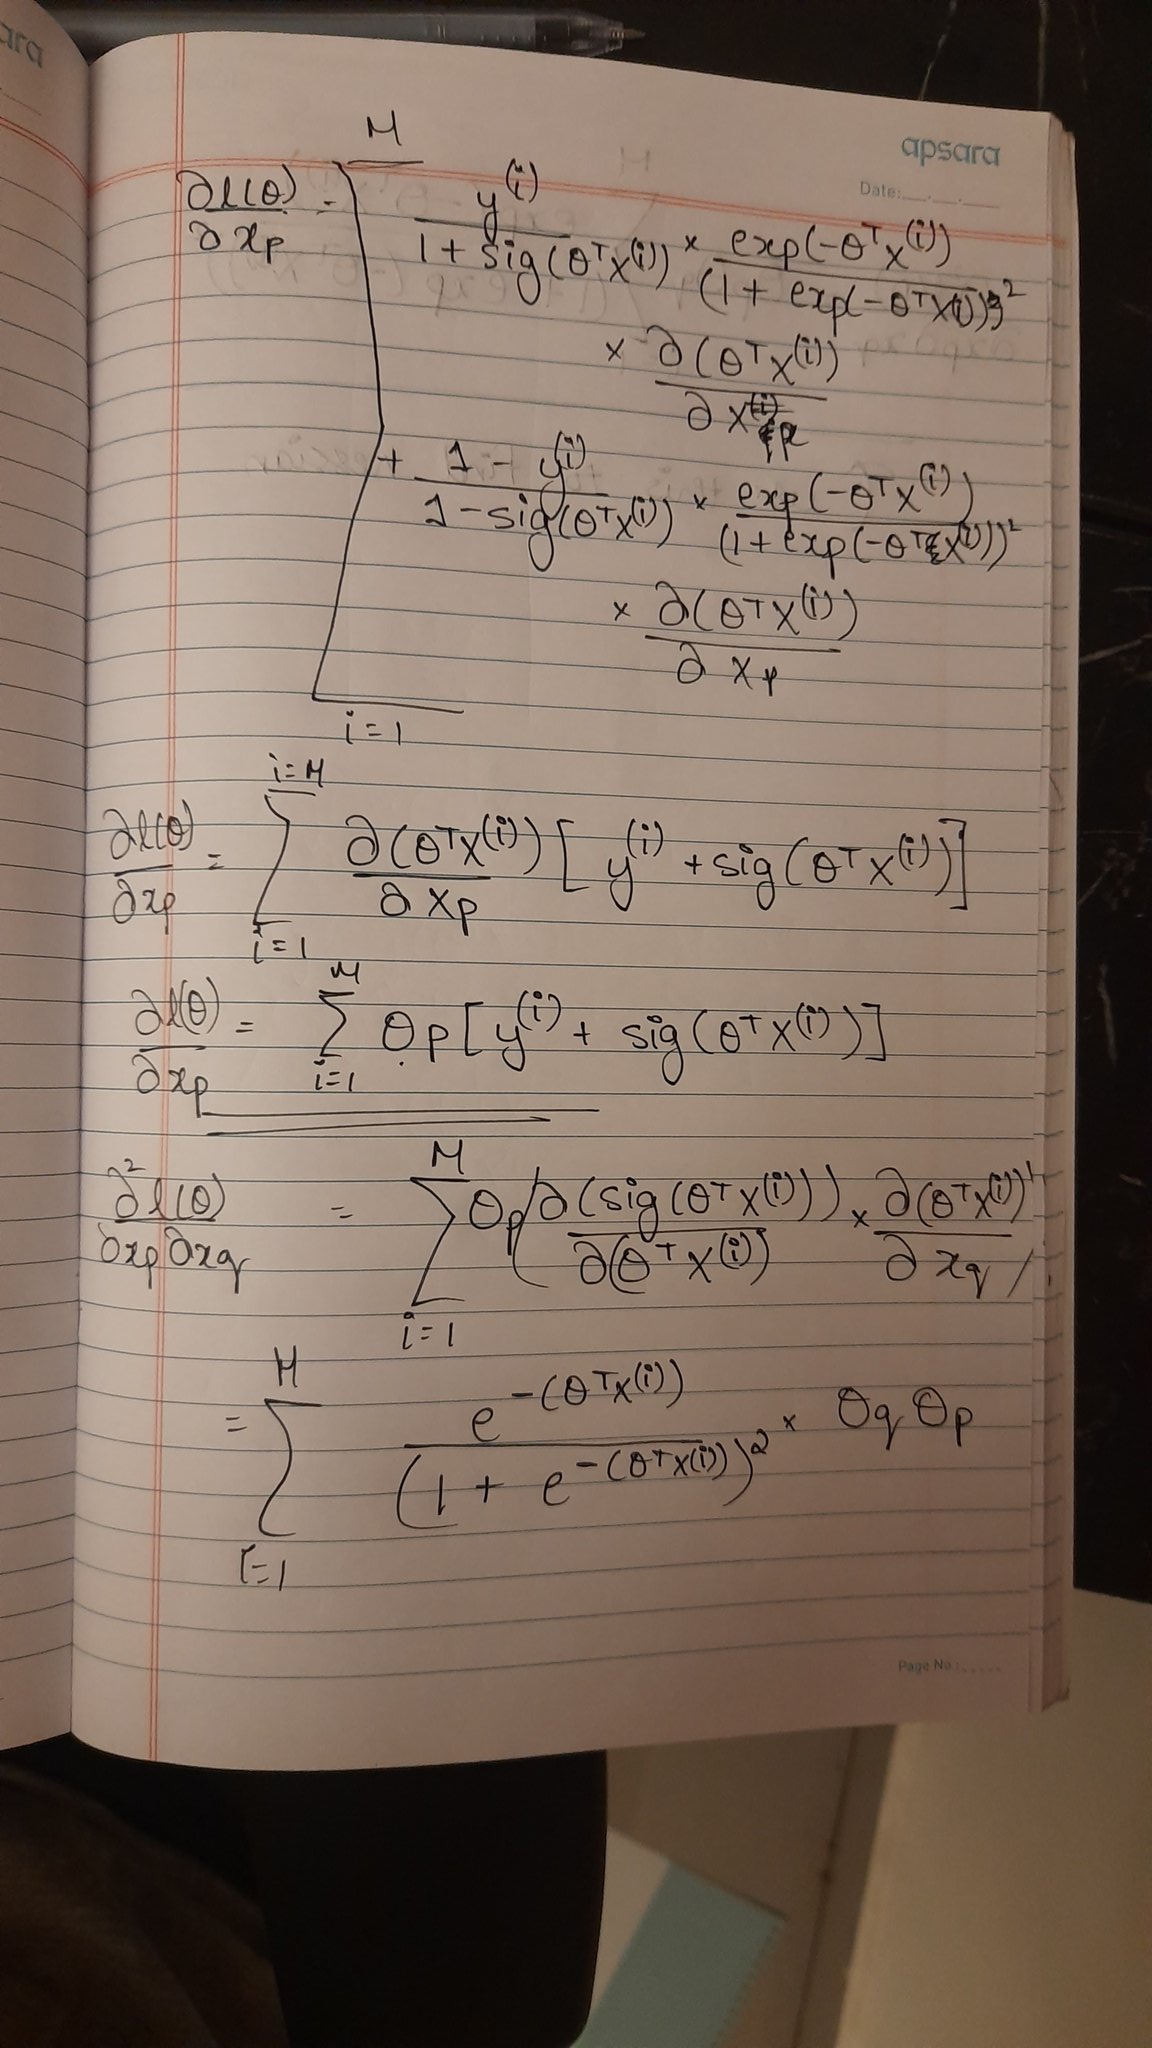 ara
apsara
Date:__.__.__
M
∂l(θ)/∂xp = Σ y^(i) / (1 + sig(θ^T x^(i))) × exp(-θ^T x^(i)) / (1 + exp(-θ^T x^(i)))^2
× ∂(θ^T x^(i)) / ∂x
+ (1 - y^(i)) / (1 - sig(θ^T x^(i))) × exp(-θ^T x^(i)) / (1 + exp(-θ^T x^(i)))^2
× ∂(θ^T x^(i)) / ∂xp
i=1
i=M
∂l(θ)/∂xp = Σ ∂(θ^T x^(i))/∂xp [ y^(i) + sig(θ^T x^(i)) ]
i=1
M
∂l(θ)/∂xp = Σ θp [ y^(i) + sig(θ^T x^(i)) ]
i=1
M
∂²l(θ)/∂xp ∂xq = Σ θp ( ∂(sig(θ^T x^(i))) / ∂(θ^T x^(i)) × ∂(θ^T x^(i)) / ∂xq )
i=1
M
= Σ e^-(θ^T x^(i)) / (1 + e^-(θ^T x^(i)))^2 × θq θp
i=1
Page No.:.....